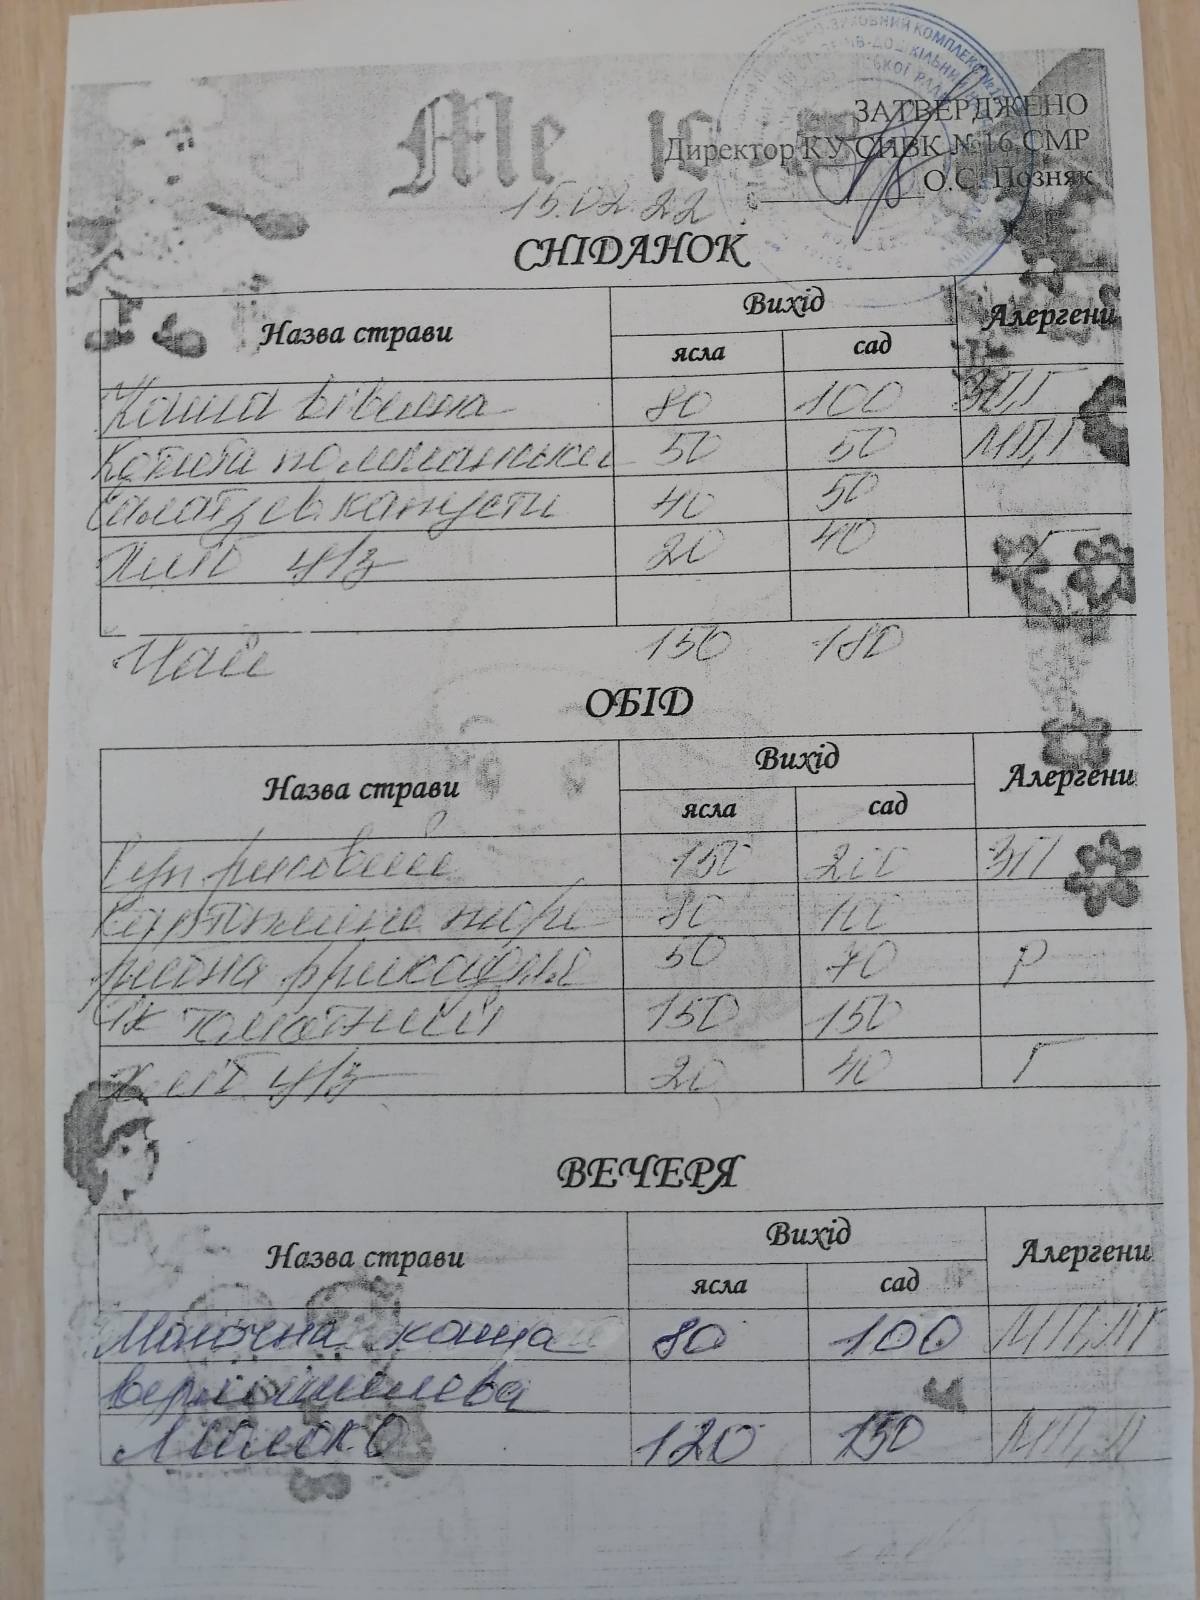 Меню
ЗАТВЕРДЖЕНО
Директор КУ СНВК №16 СМР
О.С. Позняк
15.02.22
СНІДАНОК
Назва страви Вихід Алергени
ясла сад
Каша вівсяна 80 100 ЗП,Г
Котлета по лиманськи 50 50 МП,Г
Салат з св. капусти 40 50
Хліб ц/з 20 40 Г
Чай 150 180
ОБІД
Назва страви Вихід Алергени
ясла сад
Суп рисовий 150 200 ЗП
Картопляне пюре 80 100
рибна фрикаделя 50 70 Р
Сік томатний 150 150
Хліб ц/з 20 40 Г
ВЕЧЕРЯ
Назва страви Вихід Алергени
ясла сад
Молочна каша 80 100
вермішелева
Молоко 120 150 МП,Л